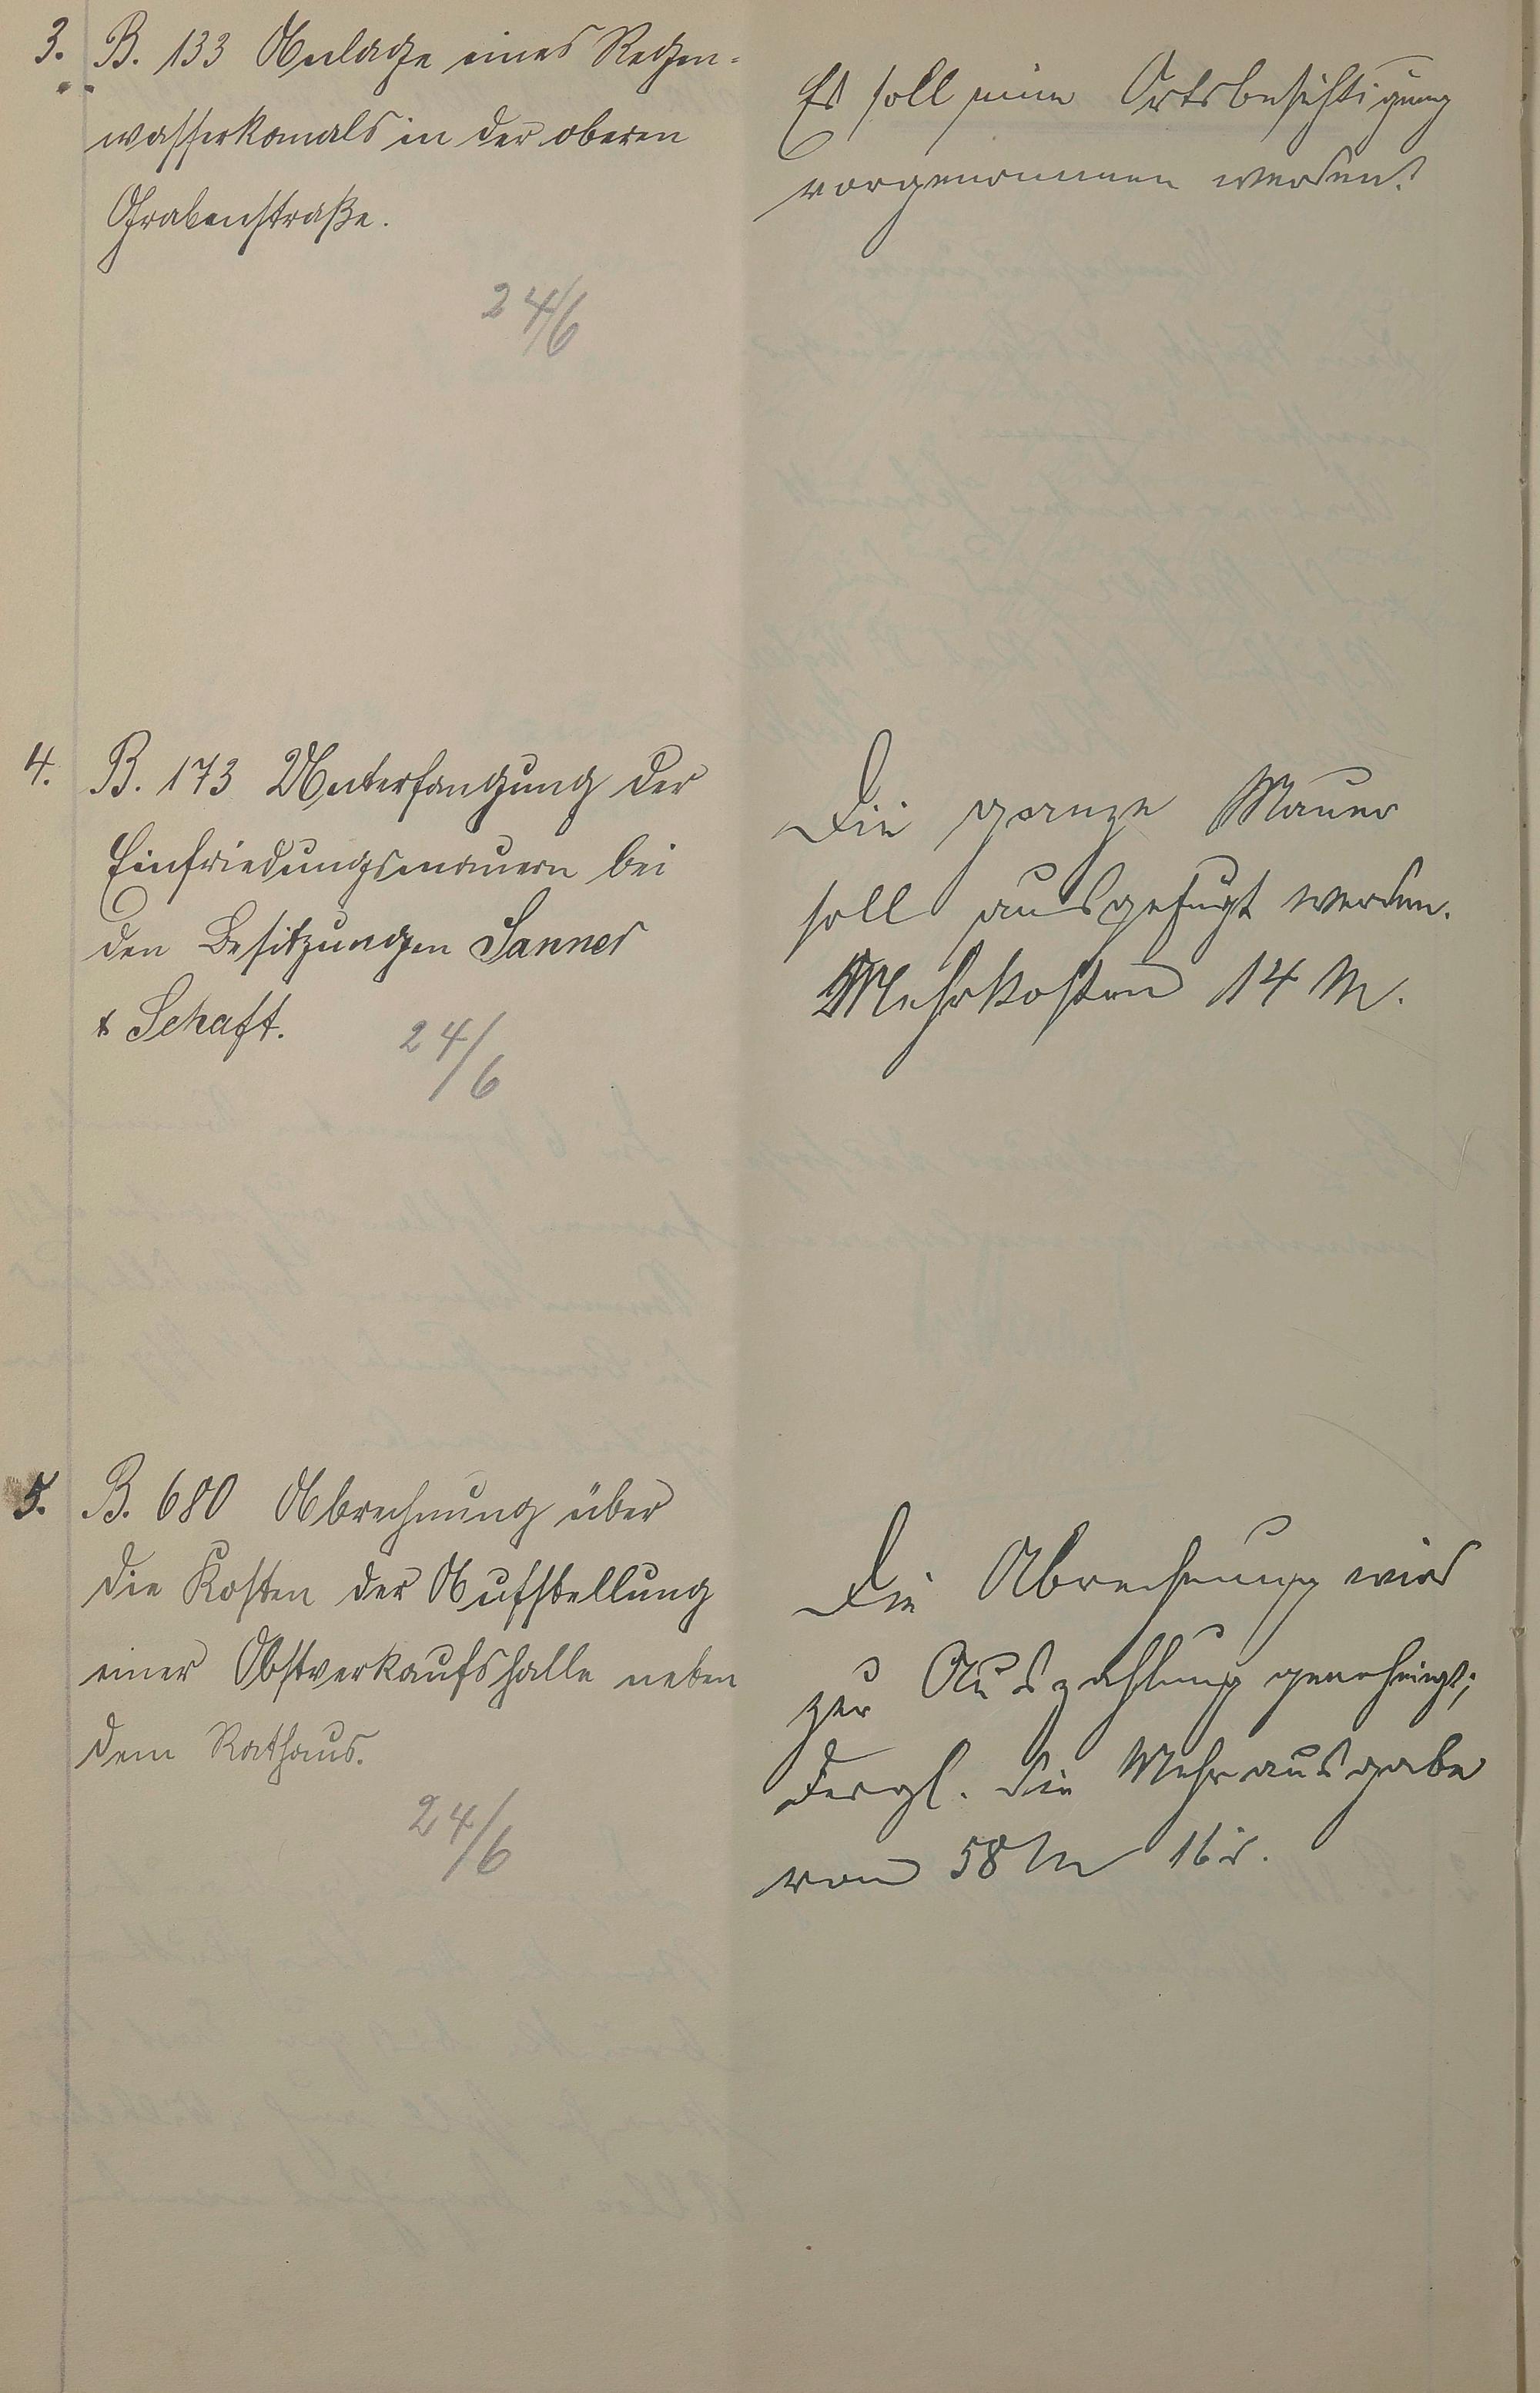 3. B. 133 Anlage eines Regen-
wasserkanals in der oberen
Grabenstraße.
24/6
Es soll eine Ortsbesichtigung
vorgenommen werden.
4. B. 173 Unterfangung der
Einfriedungsmauern bei
den Besitzungen Sanner
& Schaft.
24/6
Die ganze Mauer
soll ausgefugt werden.
Mehrkosten 14 M.
5. B. 680 Abrechnung über
die Kosten der Aufstellung
einer Obstverkaufshalle neben
dem Rathaus.
24/6
Die Abrechnung wird
zur Auszahlung genehmigt;
desgl. die Mehrausgabe
von 58 M 16